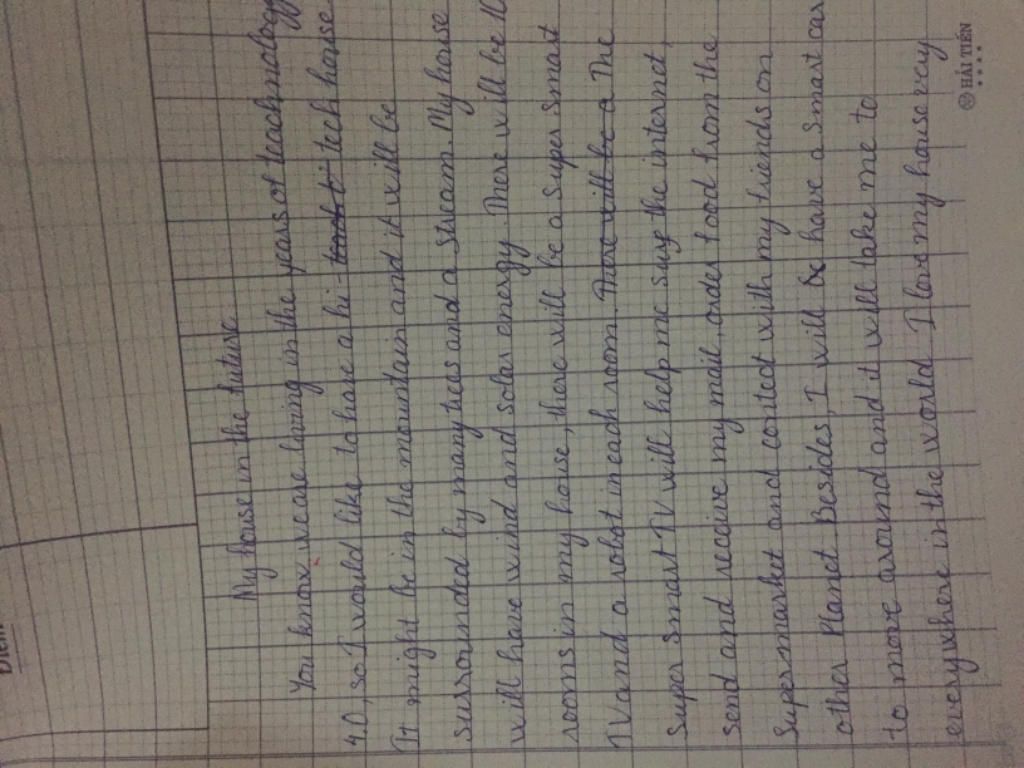 Điểm
My house in the future
You know, we are living in the years of teachnology
4.0, so I would like to have a hi-tech house
It might be in the mountain and it will be
surrounded by many trees and a stream. My house
will have wind and solar energy. There will be 10
rooms in my house, there will be a super smart
TV and a robot in each room. There will be a The
super smart TV will help me surf the internet,
send and receive my mail, order food from the
supermarket and contact with my friends on
other planet. Besides, I will have a smart car
to move around and it will take me to
everywhere in the world. I love my house very
HẢI TIẾN